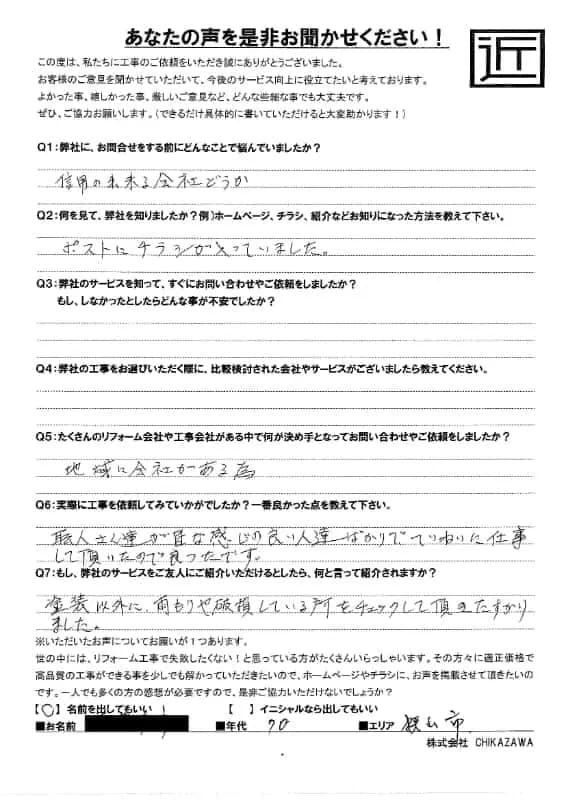 あなたの声を是非お聞かせください！
近
この度は、私たちに工事のご依頼をいただき誠にありがとうございました。
お客様のご意見を聞かせていただいて、今後のサービス向上に役立てたいと考えております。
よかった事、嬉しかった事、厳しいご意見など、どんな些細な事でも大丈夫です。
ぜひ、ご協力お願いします。（できるだけ具体的に書いていただけると大変助かります！）
Q1：弊社に、お問合せをする前にどんなことで悩んでいましたか？
信用の出来る会社どうか
Q2：何を見て、弊社を知りましたか？例）ホームページ、チラシ、紹介などお知りになった方法を教えて下さい。
ポストにチラシが入っていました。
Q3：弊社のサービスを知って、すぐにお問い合わせやご依頼をしましたか？
もし、しなかったとしたらどんな事が不安でしたか？
Q4：弊社の工事をお選びいただく際に、比較検討された会社やサービスがございましたら教えてください。
Q5：たくさんのリフォーム会社や工事会社がある中で何が決め手となってお問い合わせやご依頼をしましたか？
地域に会社がある為
Q6：実際に工事を依頼してみていかがでしたか？一番良かった点を教えて下さい。
職人さん達が皆な感じの良い人達ばかりでていねいに仕事
して頂いたので良かったです。
Q7：もし、弊社のサービスをご友人にご紹介いただけるとしたら、何と言って紹介されますか？
塗装以外に、雨もりや破損している所をチェックして頂きたすかり
ました。
※いただいたお声についてお願いが１つあります。
世の中には、リフォーム工事で失敗したくない！と思っている方がたくさんいらっしゃいます。その方々に適正価格で
高品質の工事ができる事を少しでも解かっていただきたいので、ホームページやチラシに、お声を掲載させて頂きたいの
です。一人でも多くの方の感想が必要ですので、是非ご協力いただけないでしょうか？
【○】名前を出してもいい！ 【 】イニシャルなら出してもいい
■お名前 ■年代 70 ■エリア 市
株式会社 CHIKAZAWA